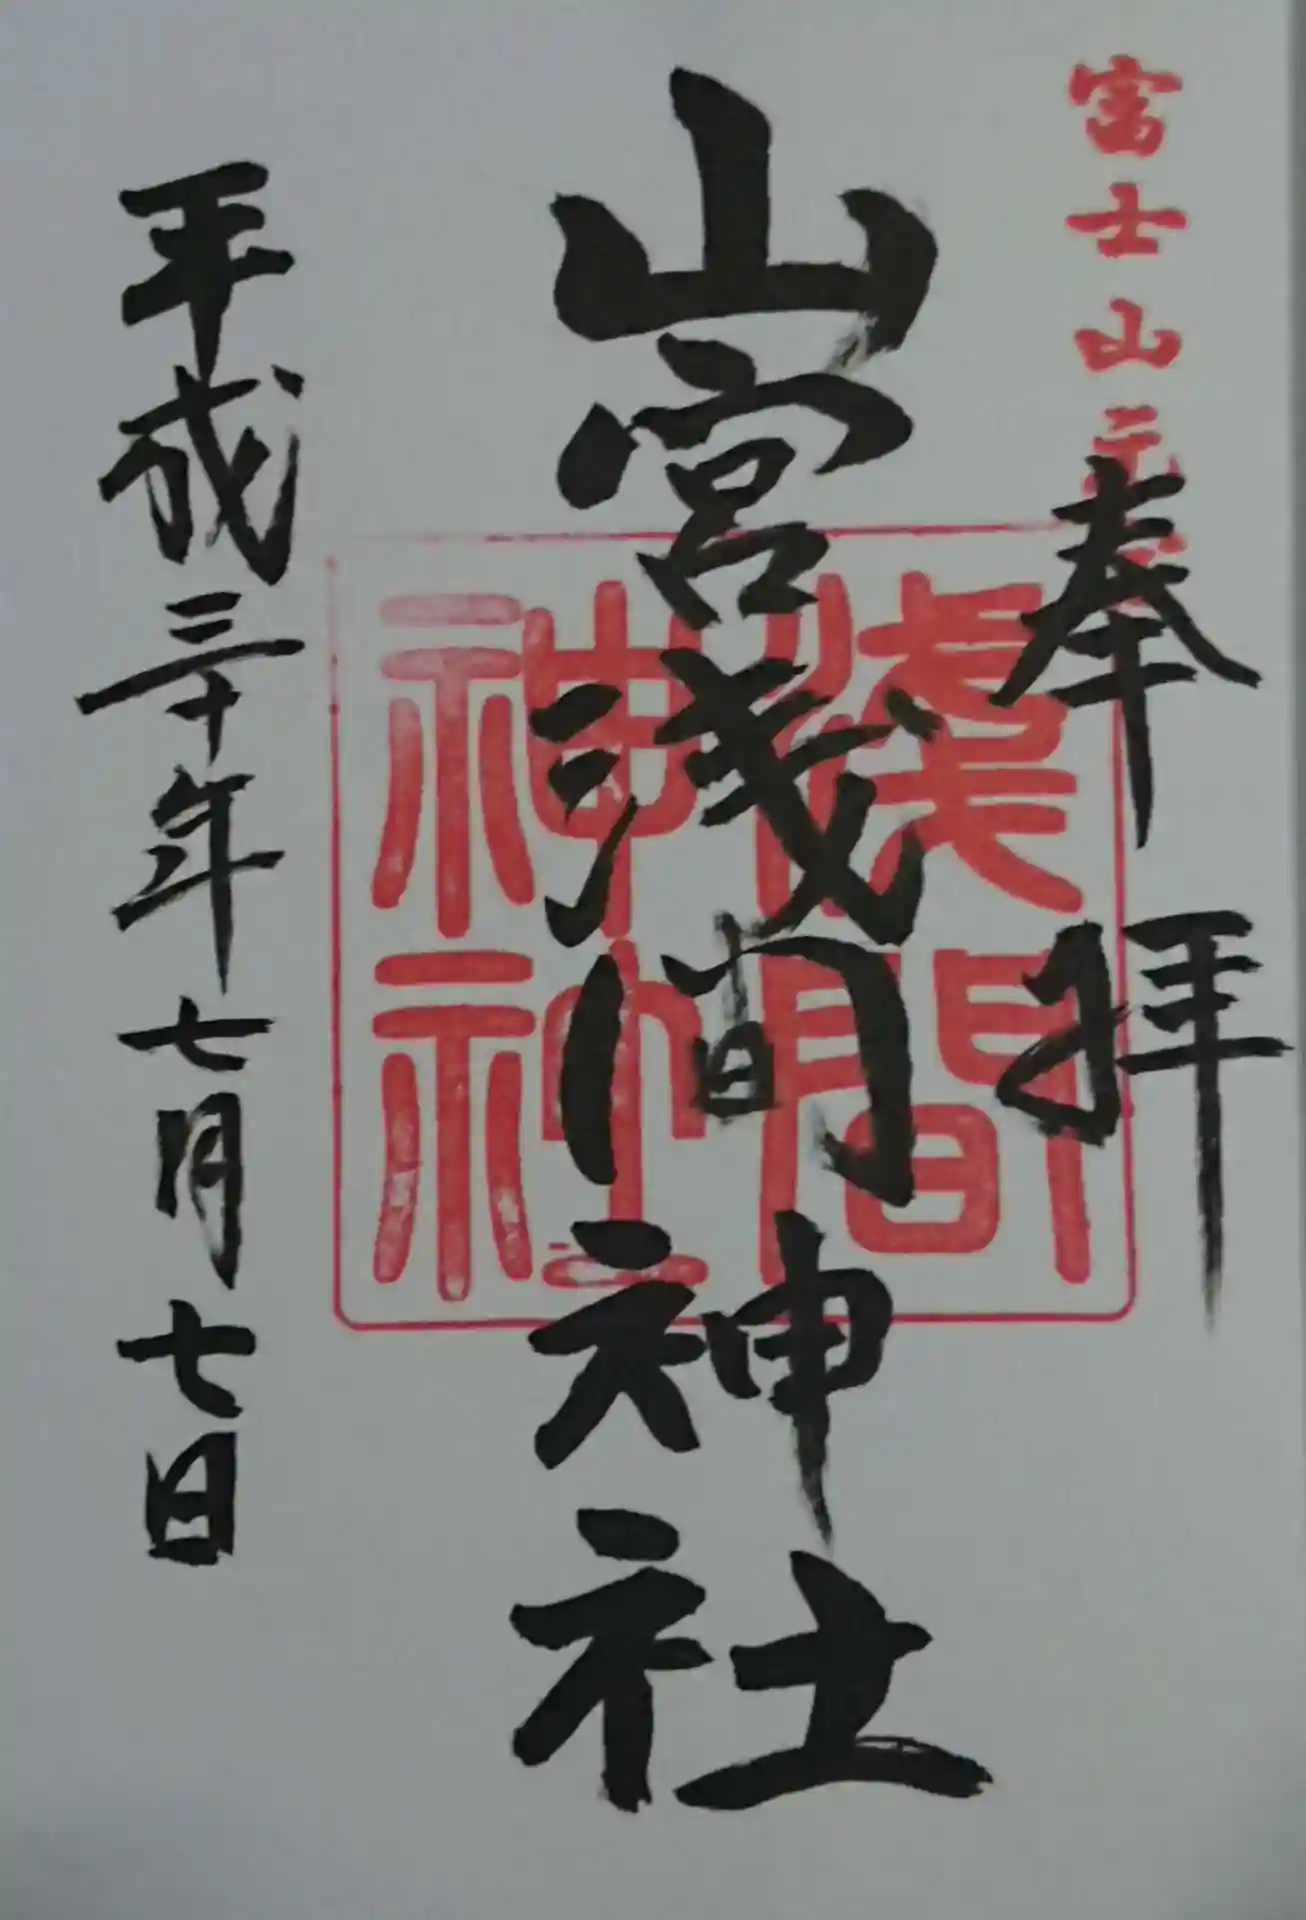 富士山元宮
奉拝
山宮浅間神社
淺間
神社
平成三十年七月七日